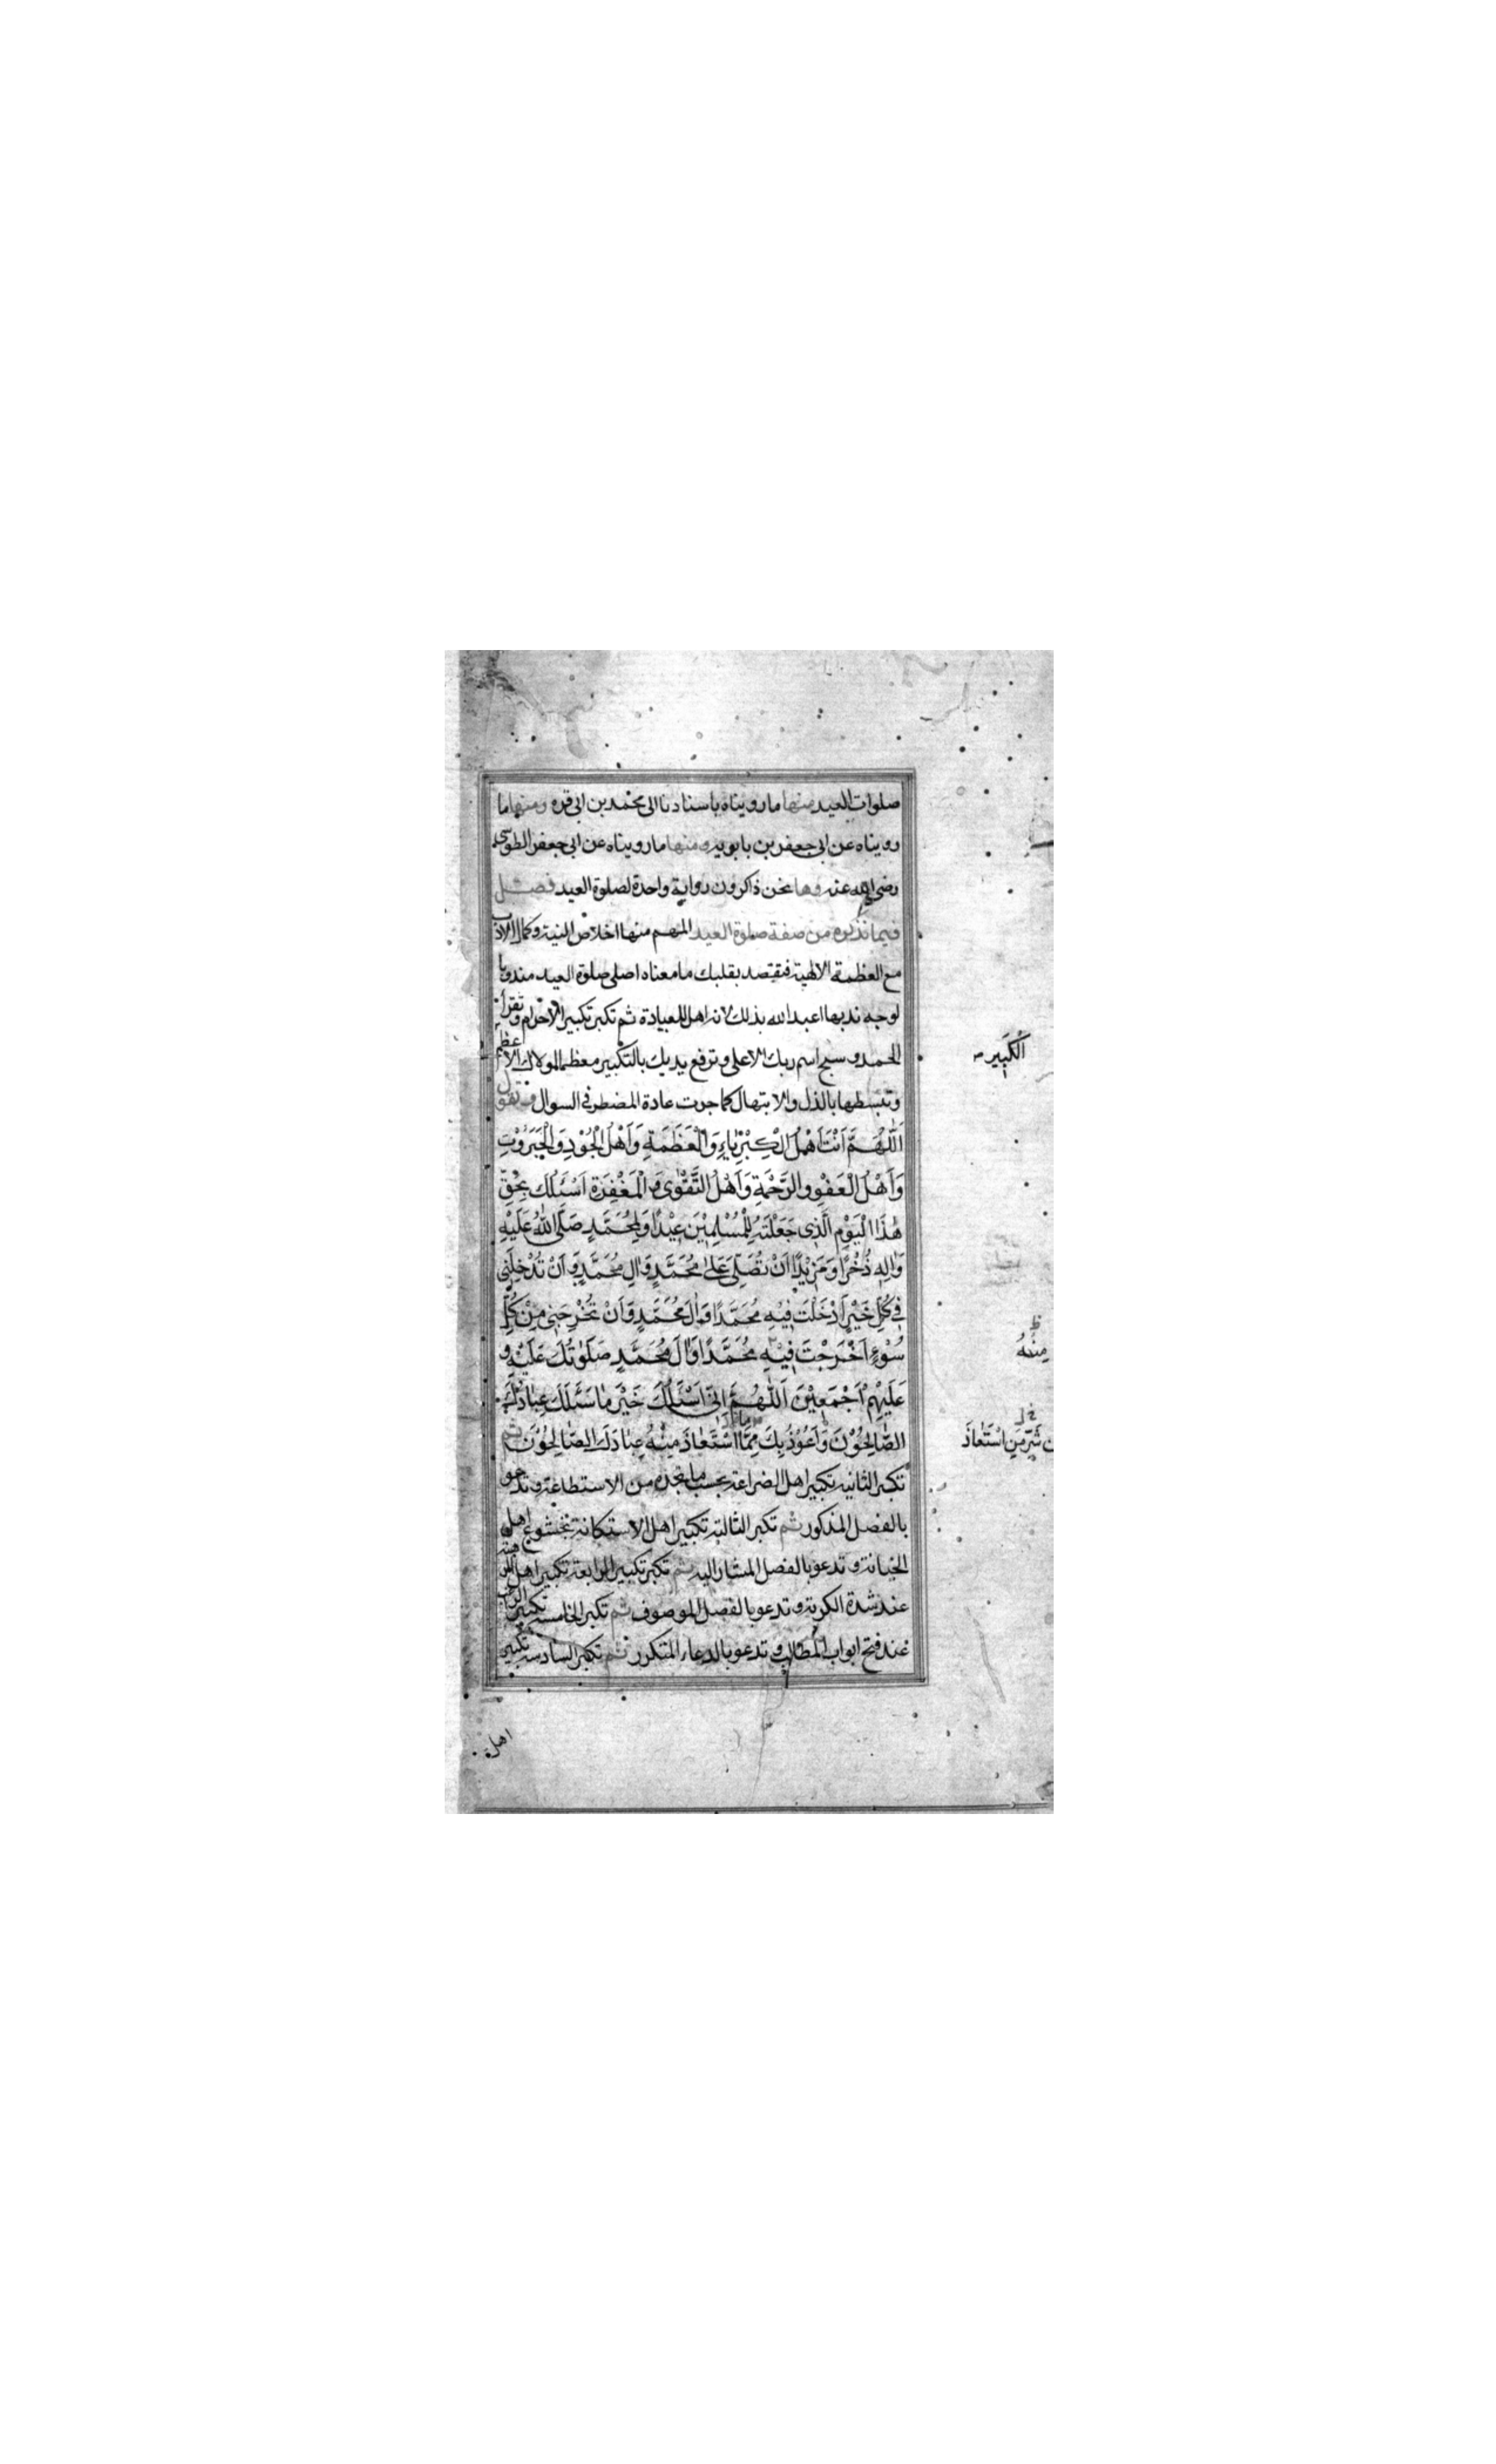 صلوات العيد منها ما رويناه باسنادنا الى محمد بن ابى قره ومنها ما
رويناه عن ابى جعفر بن بابويه ومنها ما رويناه عن ابى جعفر الطوسى
رضى الله عنه وها نحن ذاكرون رواية واحدة لصلوة العيد فصل
فيما نذكره من صفة صلوة العيد المهم منها اخلاص النية وكمال الادب
مع العظمة الالهية فتقصد بقلبك ما معناه اصلى صلوة العيد مندوبا
لوجه ندبها اعبد الله بذلك لانه اهل للعبادة ثم تكبر تكبير الاحرام وتقرأ
الحمد و سبح اسم ربك الاعلى وترفع يديك بالتكبير معظما لمولاك الاعظم
الْكَبِيرِ
وتبسطها بالذل والابتهال كما جرت عادة المضطر فى السوال وتقول
اَللّٰهُمَّ اَنْتَ اَهْلُ الْكِبْرِيٰاءِ وَالْعَظَمَةِ وَاَهْلُ الْجُوْدِ وَالْجَبَرُوْتِ
وَاَهْلُ الْعَفْوِ وَالرَّحْمَةِ وَاَهْلُ التَّقْوٰى وَالْمَغْفِرَةِ اَسْئَلُكَ بِحَقِّ
هٰذَا الْيَوْمِ الَّذِى جَعَلْتَهُ لِلْمُسْلِمِيْنَ عِيْدًا وَلِمُحَمَّدٍ صَلَّى اللهُ عَلَيْهِ
وَاٰلِهِ ذُخْرًا وَمَزِيْدًا اَنْ تُصَلِّىَ عَلٰى مُحَمَّدٍ وَاٰلِ مُحَمَّدٍ وَاَنْ تُدْخِلَنِى
فِى كُلِّ خَيْرٍ اَدْخَلْتَ فِيْهِ مُحَمَّدًا وَاٰلَ مُحَمَّدٍ وَاَنْ تُخْرِجَنِى مِنْ كُلِّ
سُوْءٍ اَخْرَجْتَ فِيْهِ مُحَمَّدًا وَاٰلَ مُحَمَّدٍ صَلَوٰتُكَ عَلَيْهِ وَ
مِنْهُ
عَلَيْهِمْ اَجْمَعِيْنَ اَللّٰهُمَّ اِنِّى اَسْئَلُكَ خَيْرَ مٰا سَئَلَكَ عِبٰادُكَ
الصّٰالِحُوْنَ وَاَعُوْذُ بِكَ مِمَّا اسْتَعٰاذَ مِنْهُ عِبٰادُكَ الصّٰالِحُوْنَ ثم
شَرِّ مَنِ اسْتَعٰاذَ
تكبر الثانية تكبير اهل الضراعة بحسب ما تجده من الاستطاعة وتدعو
بالفصل المذكور ثم تكبر الثالثة تكبير اهل الاستكانة بخشوع اهل
الخيانة وتدعو بالفصل المشار اليه ثم تكبر تكبير الرابعة تكبير اهل
عند شدة الكربة وتدعو بالفصل الموصوف ثم تكبر الخامسة تكبير
عند فتح ابواب المطالب وتدعو بالدعاء المتكرر ثم تكبر السادسة تكبير
اهل